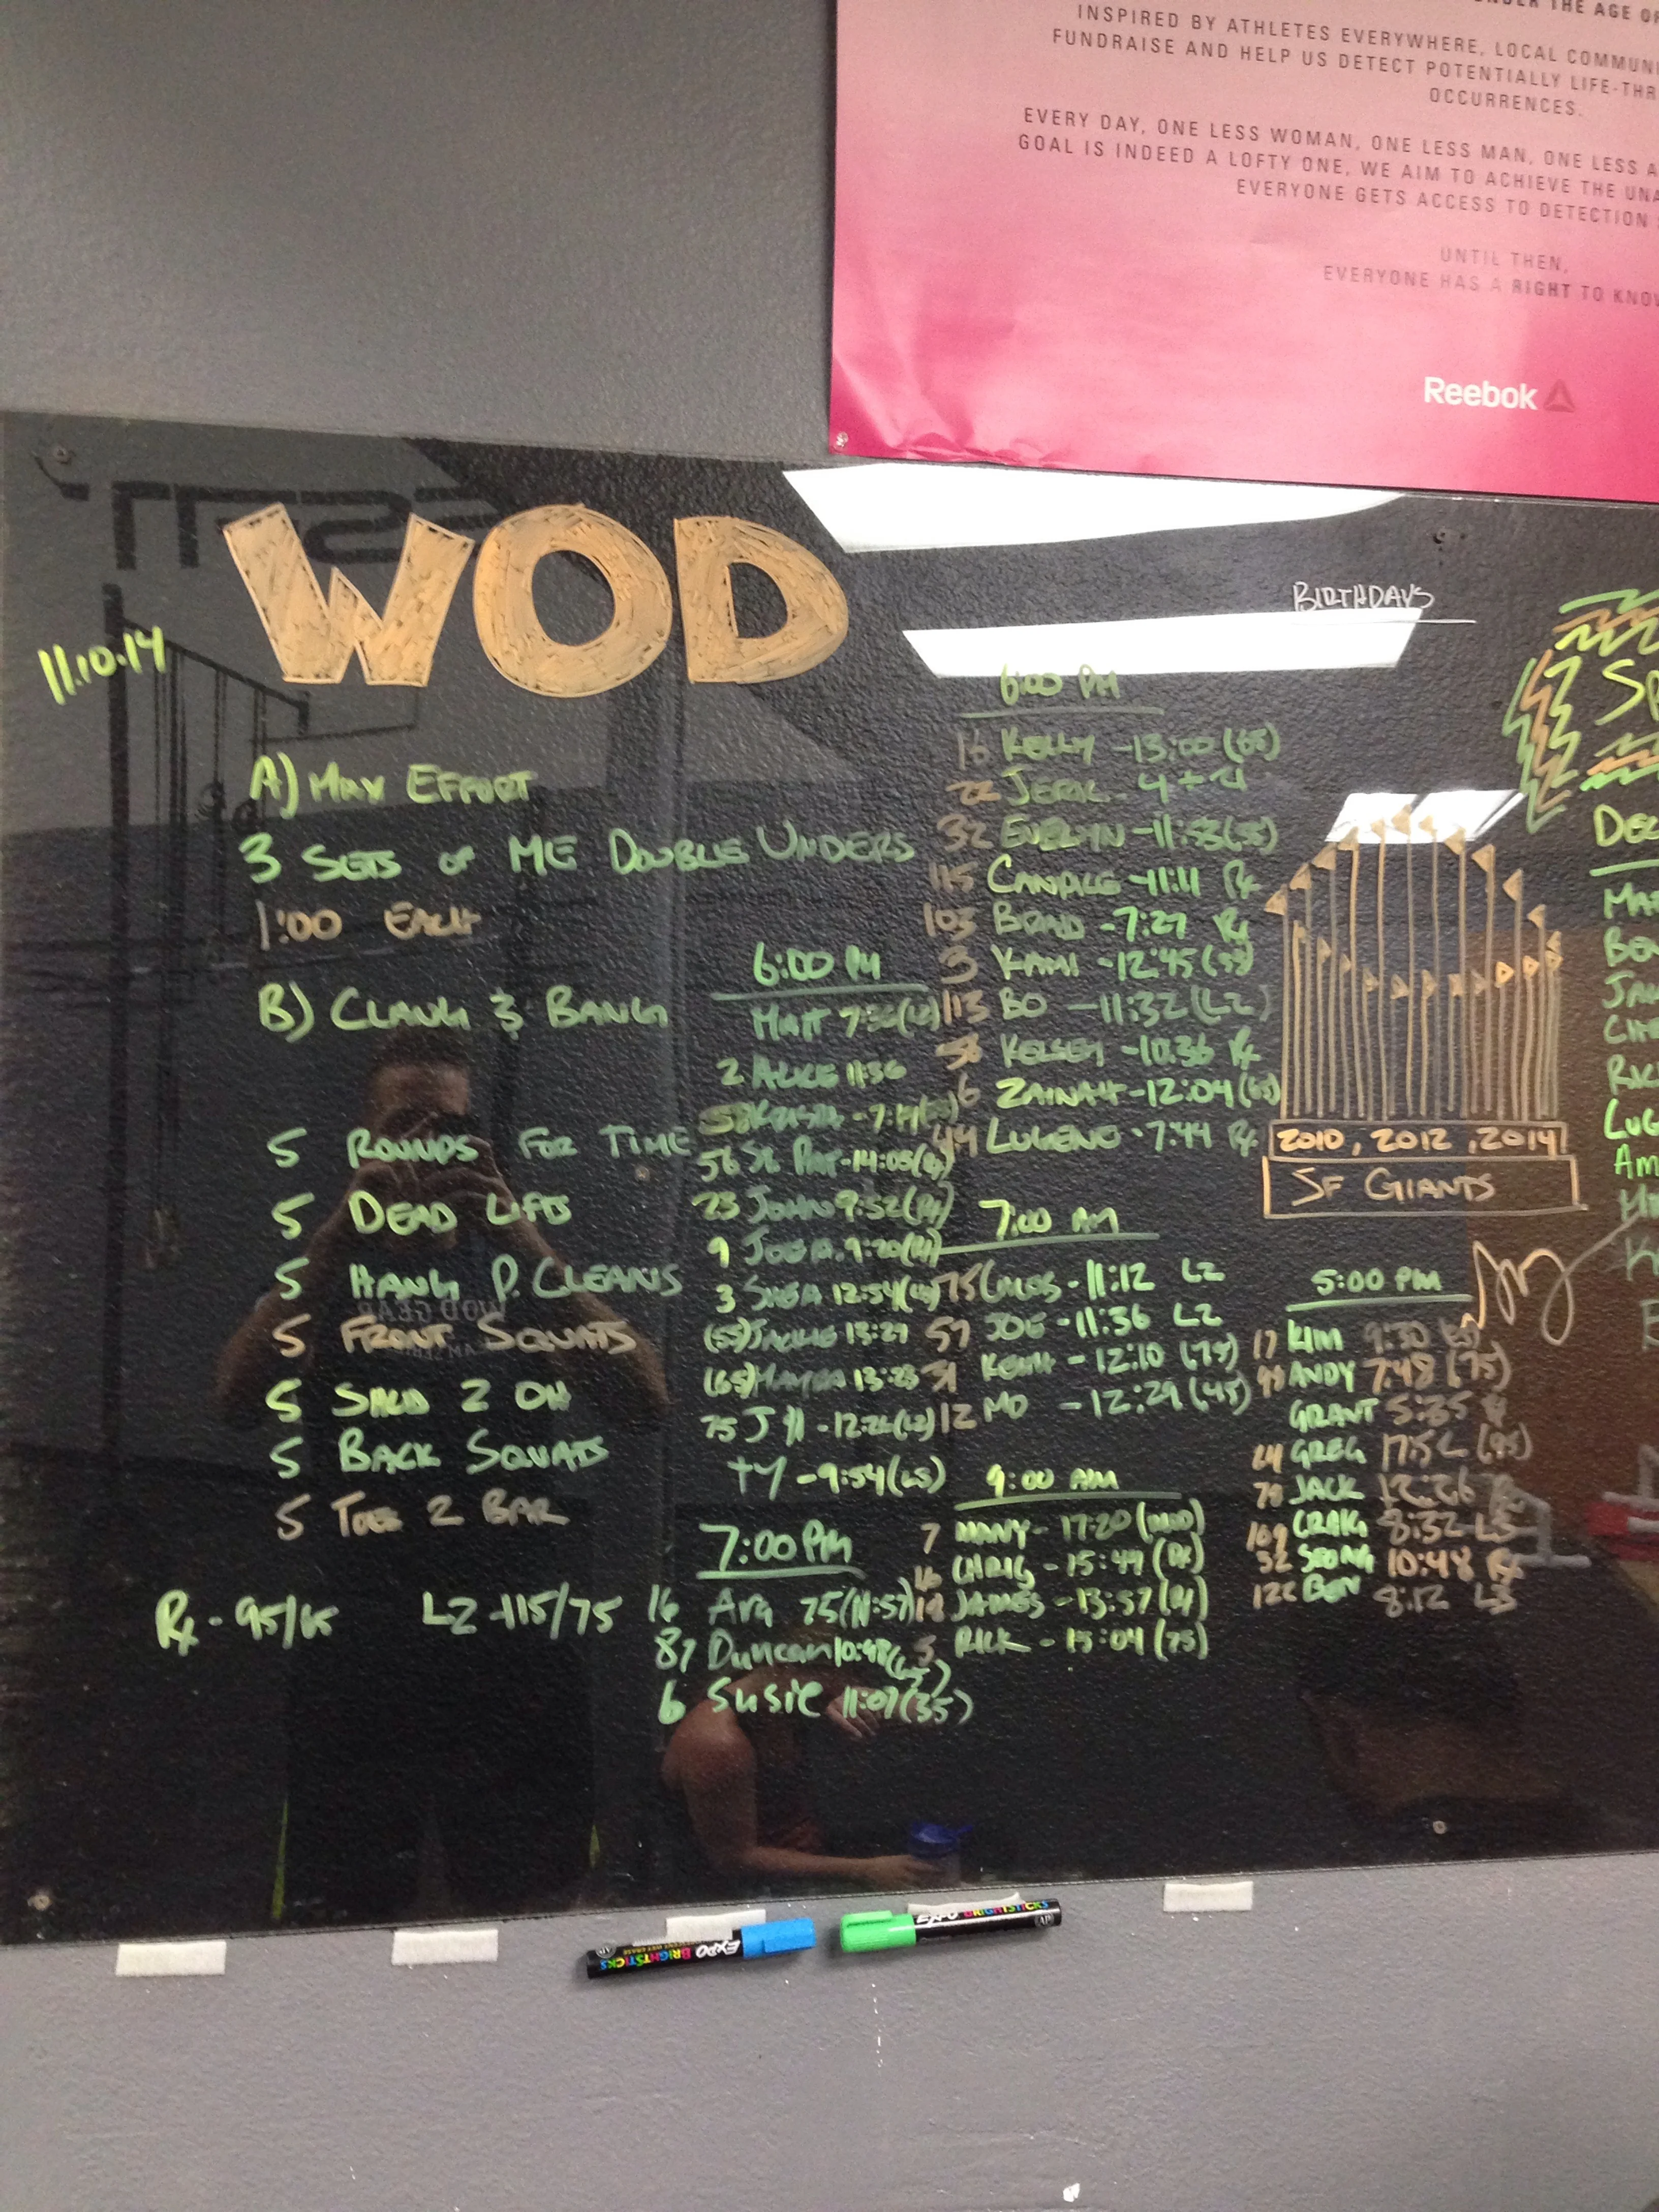 THE AGE OF
INSPIRED BY ATHLETES EVERYWHERE, LOCAL COMMUNI
FUNDRAISE AND HELP US DETECT POTENTIALLY LIFE-THR
OCCURRENCES.
EVERY DAY, ONE LESS WOMAN, ONE LESS MAN, ONE LESS A
GOAL IS INDEED A LOFTY ONE, WE AIM TO ACHIEVE THE UNA
EVERYONE GETS ACCESS TO DETECTION
UNTIL THEN,
EVERYONE HAS A RIGHT TO KNOW
Reebok
WOD
11.10.14
A) MAX EFFORT
3 SETS OF ME DOUBLE UNDERS
1:00 EACH
B) CLANG & BANG
5 ROUNDS FOR TIME
5 DEAD LIFTS
5 HANG P. CLEANS
5 FRONT SQUATS
5 SHLD 2 OH
5 BACK SQUATS
5 TOES 2 BAR
Rx - 95/65 L2 - 115/75
6:00 PM
MATT
2 ALICE 11:36
56 14:05
23 JOHN 9:52
9 9:20
3 SHEA 12:54
(55) JACKIE 13:27
(65) 13:23
75 12:22
TY - 9:54
7:00 PM
16 Ara 75 (11:57)
87 Duncan 10:48
6 Susie 11:07 (35)
6:00 PM
16 KELLY - 13:00 (65)
22 4 + 4
32 EVELYN - 11:53
115 CANDACE - 11:11 Rx
103 BRAD - 7:27 Rx
3 KAMI - 12:45
113 BO - 11:32 (L2)
56 KELSEY - 10:36 Rx
6 ZAINAH - 12:04 (65)
44 LUGENE - 7:44 Rx
7:00 AM
75 - 11:12 L2
57 JOE - 11:36 L2
31 KEITH - 12:10 (75)
12 MO - 12:29 (45)
9:00 AM
7 MANY - 17:20 (MOD)
16 CHRIS - 15:49 (Rx)
JAMES - 13:57
5 RICK - 15:04 (75)
BIRTHDAYS
2010, 2012, 2014
SF GIANTS
5:00 PM
17 KIM 9:30
ANDY 7:48 (75)
GRANT 5:35
24 GREG 17:52 (95)
JACK 12:26
109 CRAIG 8:32
32 SEONG 10:48 Rx
BEN 8:12
EXPO BRIGHTSTICKS
EXPO BRIGHTSTICKS